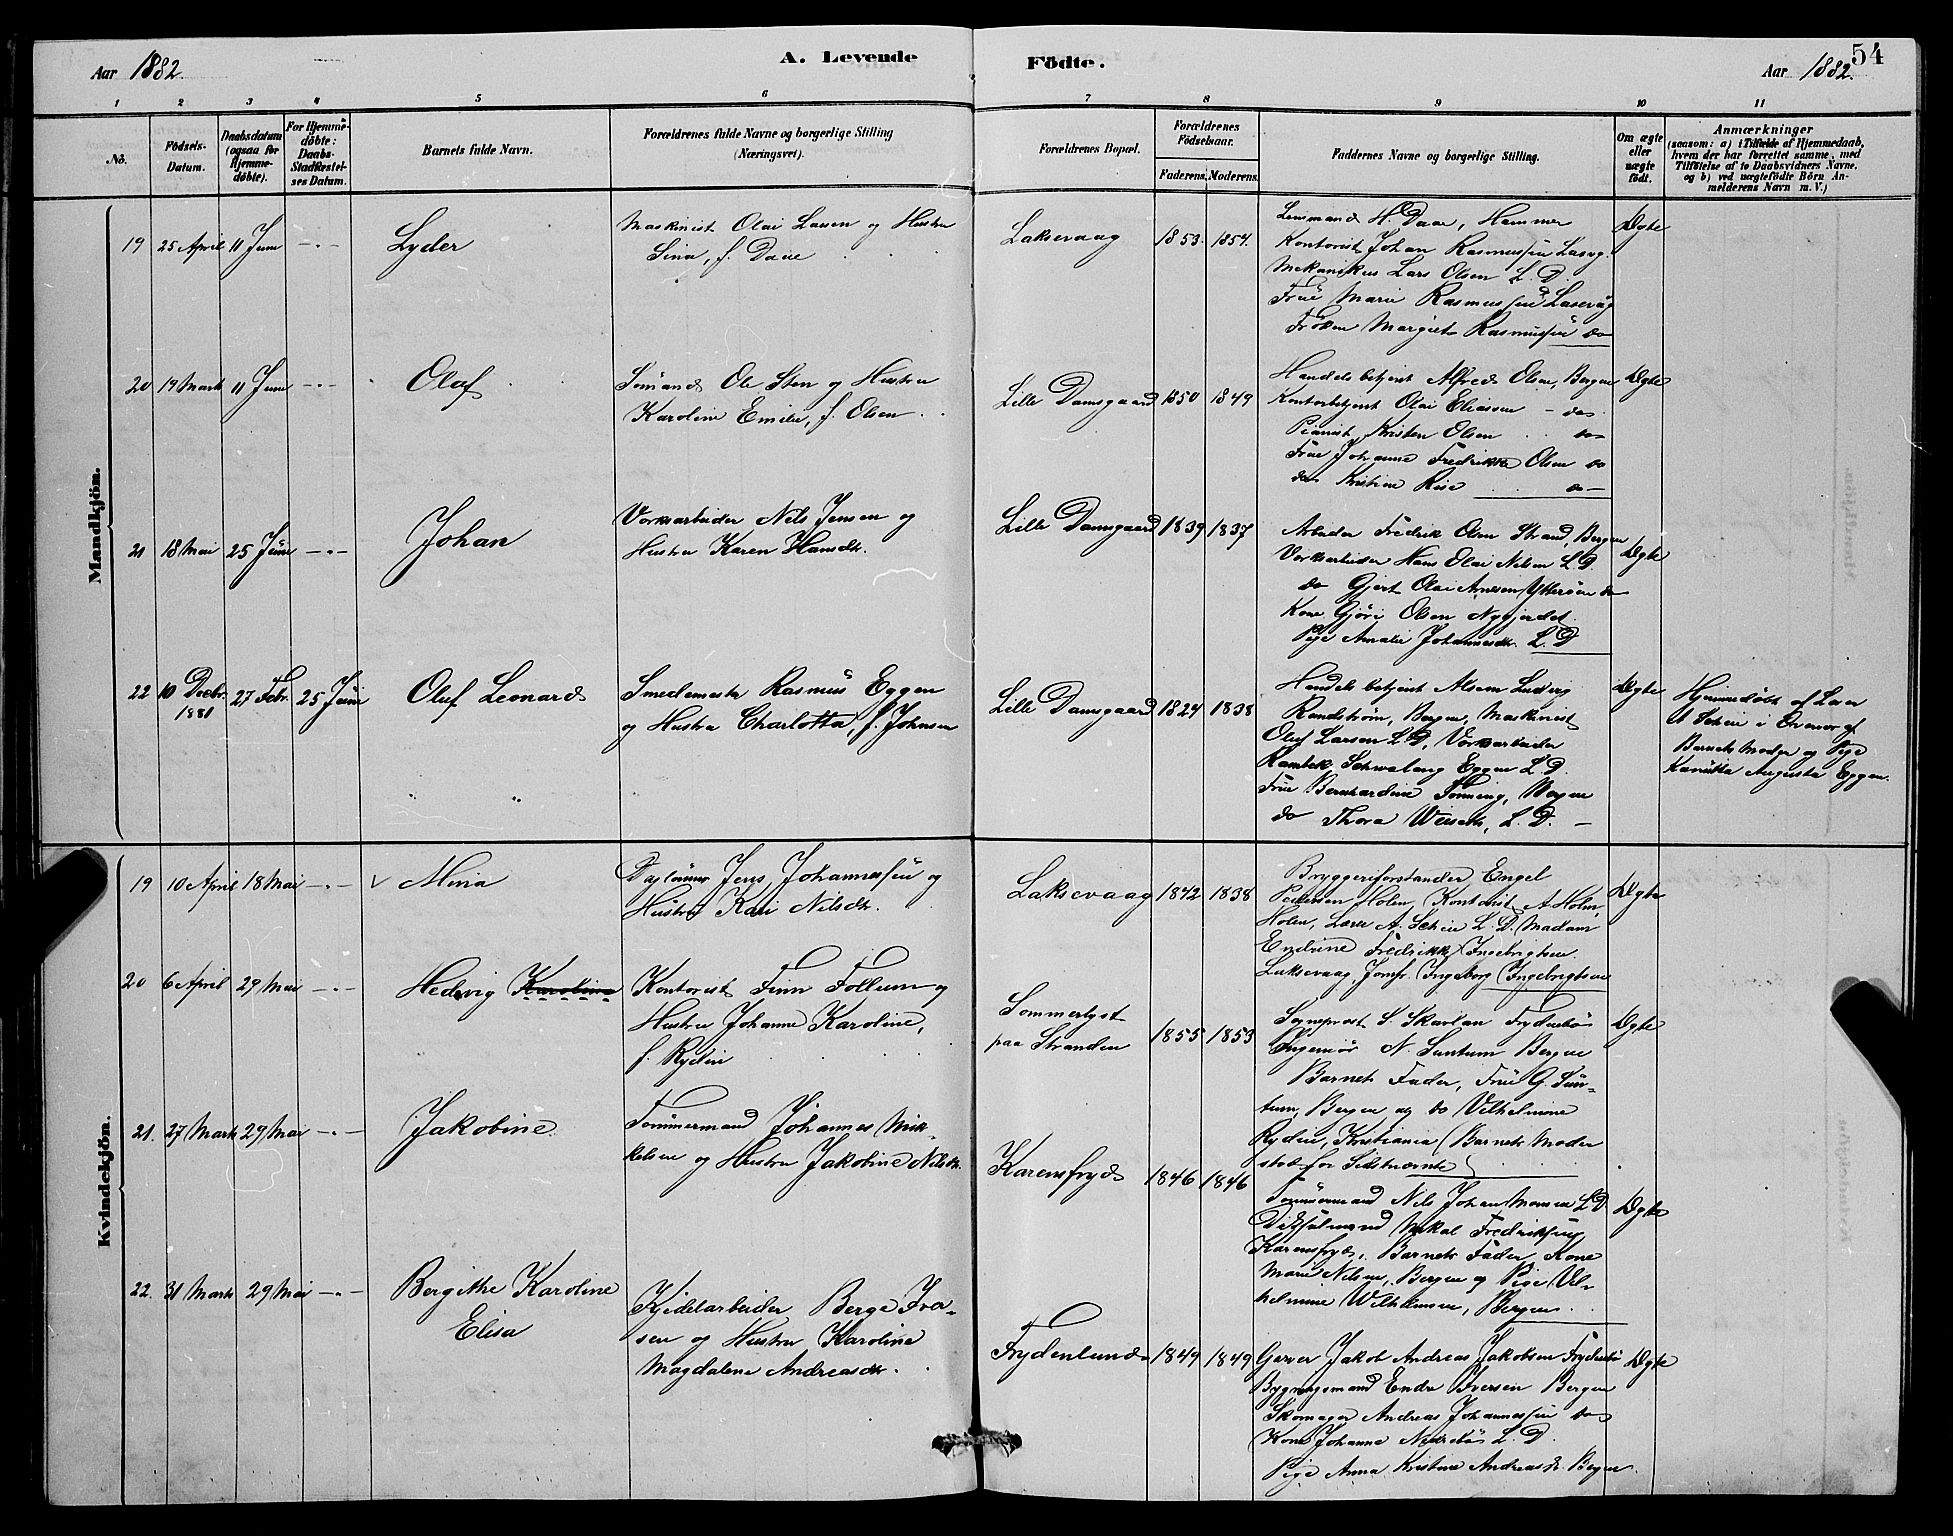 54
Aar 1882. A. Levende Födte. Aar 1882.
1 2 3 4 5 6 7 8 9 10 11
No. Födsels-Datum. Daabsdatum (ogsaa for Hjemmedöbte). For Hjemmedöbte: Daabs-Stadfæstelses Datum. Barnets fulde Navn. Forældrenes fulde Navne og borgerlige Stilling (Næringsvei). Forældrenes Bopæl. Forældrenes Födselsaar. Faderens. Moderens. Faddernes Navne og borgerlige Stilling. Om ægte eller uægte födt. Anmærkninger (saasom: a) i Tilfælde af Hjemmedaab, hvem der har forrettet samme, med Tilföielse af to Daabsvidners Navne, og b) ved uægtefödte Börn Anmelderens Navn m. V.)
Mandkjön.
19 25 April 11 Juni -"- Lyder
Maskinist Olai Larsen og Hustru
Sina, f. Daae
Laksevaag 1853. 1854.
Lensmand H. Daae, Hammer
Kontorist Johan Rasmussen Laxvg.
Mekanikus Lars Olsen L. D.
Frue Marie Rasmussen Laxevåg
Fröken Margit Rasmussen do
Ægte
20 19 Marts 11 Juni -"- Olaf
Sömand Ole Sten og Hustru
Karoline Emilie, f. Olsen
Lille Damsgaard 1850 1849
Handelsbetjent Alfred Olsen, Bergen
Kontorbetjent Olai Eliassen - do
Pianist Kristen Olsen do
Frue Johanne Fredrikke Olsen do
do Kristine Rise do
Ægte
21 18 Mai 25 Juni -"- Johan
Værksarbeider Nils Jensen og
Hustru Karen Hansdtr.
Lille Damsgaard 1839 1837
Arbeider Fredrik Olsen Strand, Bergen
Værksarbeider Hans Olai Nilsen L. D.
do Gjert Olai Arnesen Ytteröen do
Kone Gjöri Olsen Nygjerdet
Pige Amalie Johannesdtr. L. D
Ægte
22 10 Decbr. 1881 27 Febr. 25 Juni Oluf Leonard
Smedemester Rasmus Eggen
og Hustru Charlotta, f. Johnsen
Lille Damsgaard 1824 1838
Handelsbetjent Ludvig
Randström, Bergen, Maskinist
Oluf Larsen L. D, Værksarbeider
Schwalang Eggen L. D.
Frue Bernhardine Tönning, Bergen
do Thora L. D. -
Ægte
Hjemmedöbt af Lærer
A Scheie i Overvær af
Barnets Moder og Pige
Augusta Eggen.
Kvindekjön.
19 10 April 18 Mai -"- Mina
Daglönner Jens Johannessen og
Hustru Kari Nilsdtr.
Laksevaag 1842 1838
Bryggeriforstander Engel
Pedersen Holen, Kontorist A Holm
Holen, Lærer A. Scheie L. D. Madam
Endrine Fredrikke Ingebrigtsen
Laksevaag, Jomfr. Ingeborg Ingebrigtsen
Ægte
20 6 April 29 Mai -"- Hedvig Karoline
Kontorist Finn Follum og
Hustru Johanne Karoline,
f. Rydin
Sommerlyst
paa Stranden 1855 1853
Sogneprest S. Skavlan Frydenbö
Ingeniör N. Suntum Bergen
Barnets Fader, Frue G. Sun-
tum, Bergen og do Vilhelmine
Rydin, Kristiania (Barnets Moder
stod for Sidstnævnte)
Ægte
21. 27 Marts 29 Mai -"- Jakobine
Tömmermand Johannes Mik-
kelsen og Hustru Jakobine Nilsdtr.
Karensfryd 1846 1846
Tömmermand Nils Johan Monsen L D
Mikal Fredriksen
Karensfryd, Barnets Fader, Kone
Marie Nilsen, Bergen og Pige Vil-
helmine Wilhelmsen, Bergen
Ægte
22. 31 Marts 29 Mai -"- Bergithe Karoline
Elisa
Kjedelarbeider Berge Iver-
sen og Hustru Karoline
Magdalene Andreasdtr.
Frydenlund 1849 1849
Garver Jakob Andreas Jakobsen Frydenbö
Bygningsmand Endre Iversen Bergen
Skomager Andreas Johannessen do
Kone Johanne Nedrebö L. D.
Pige Anna Kristine Andreasdtr. Bergen
Ægte